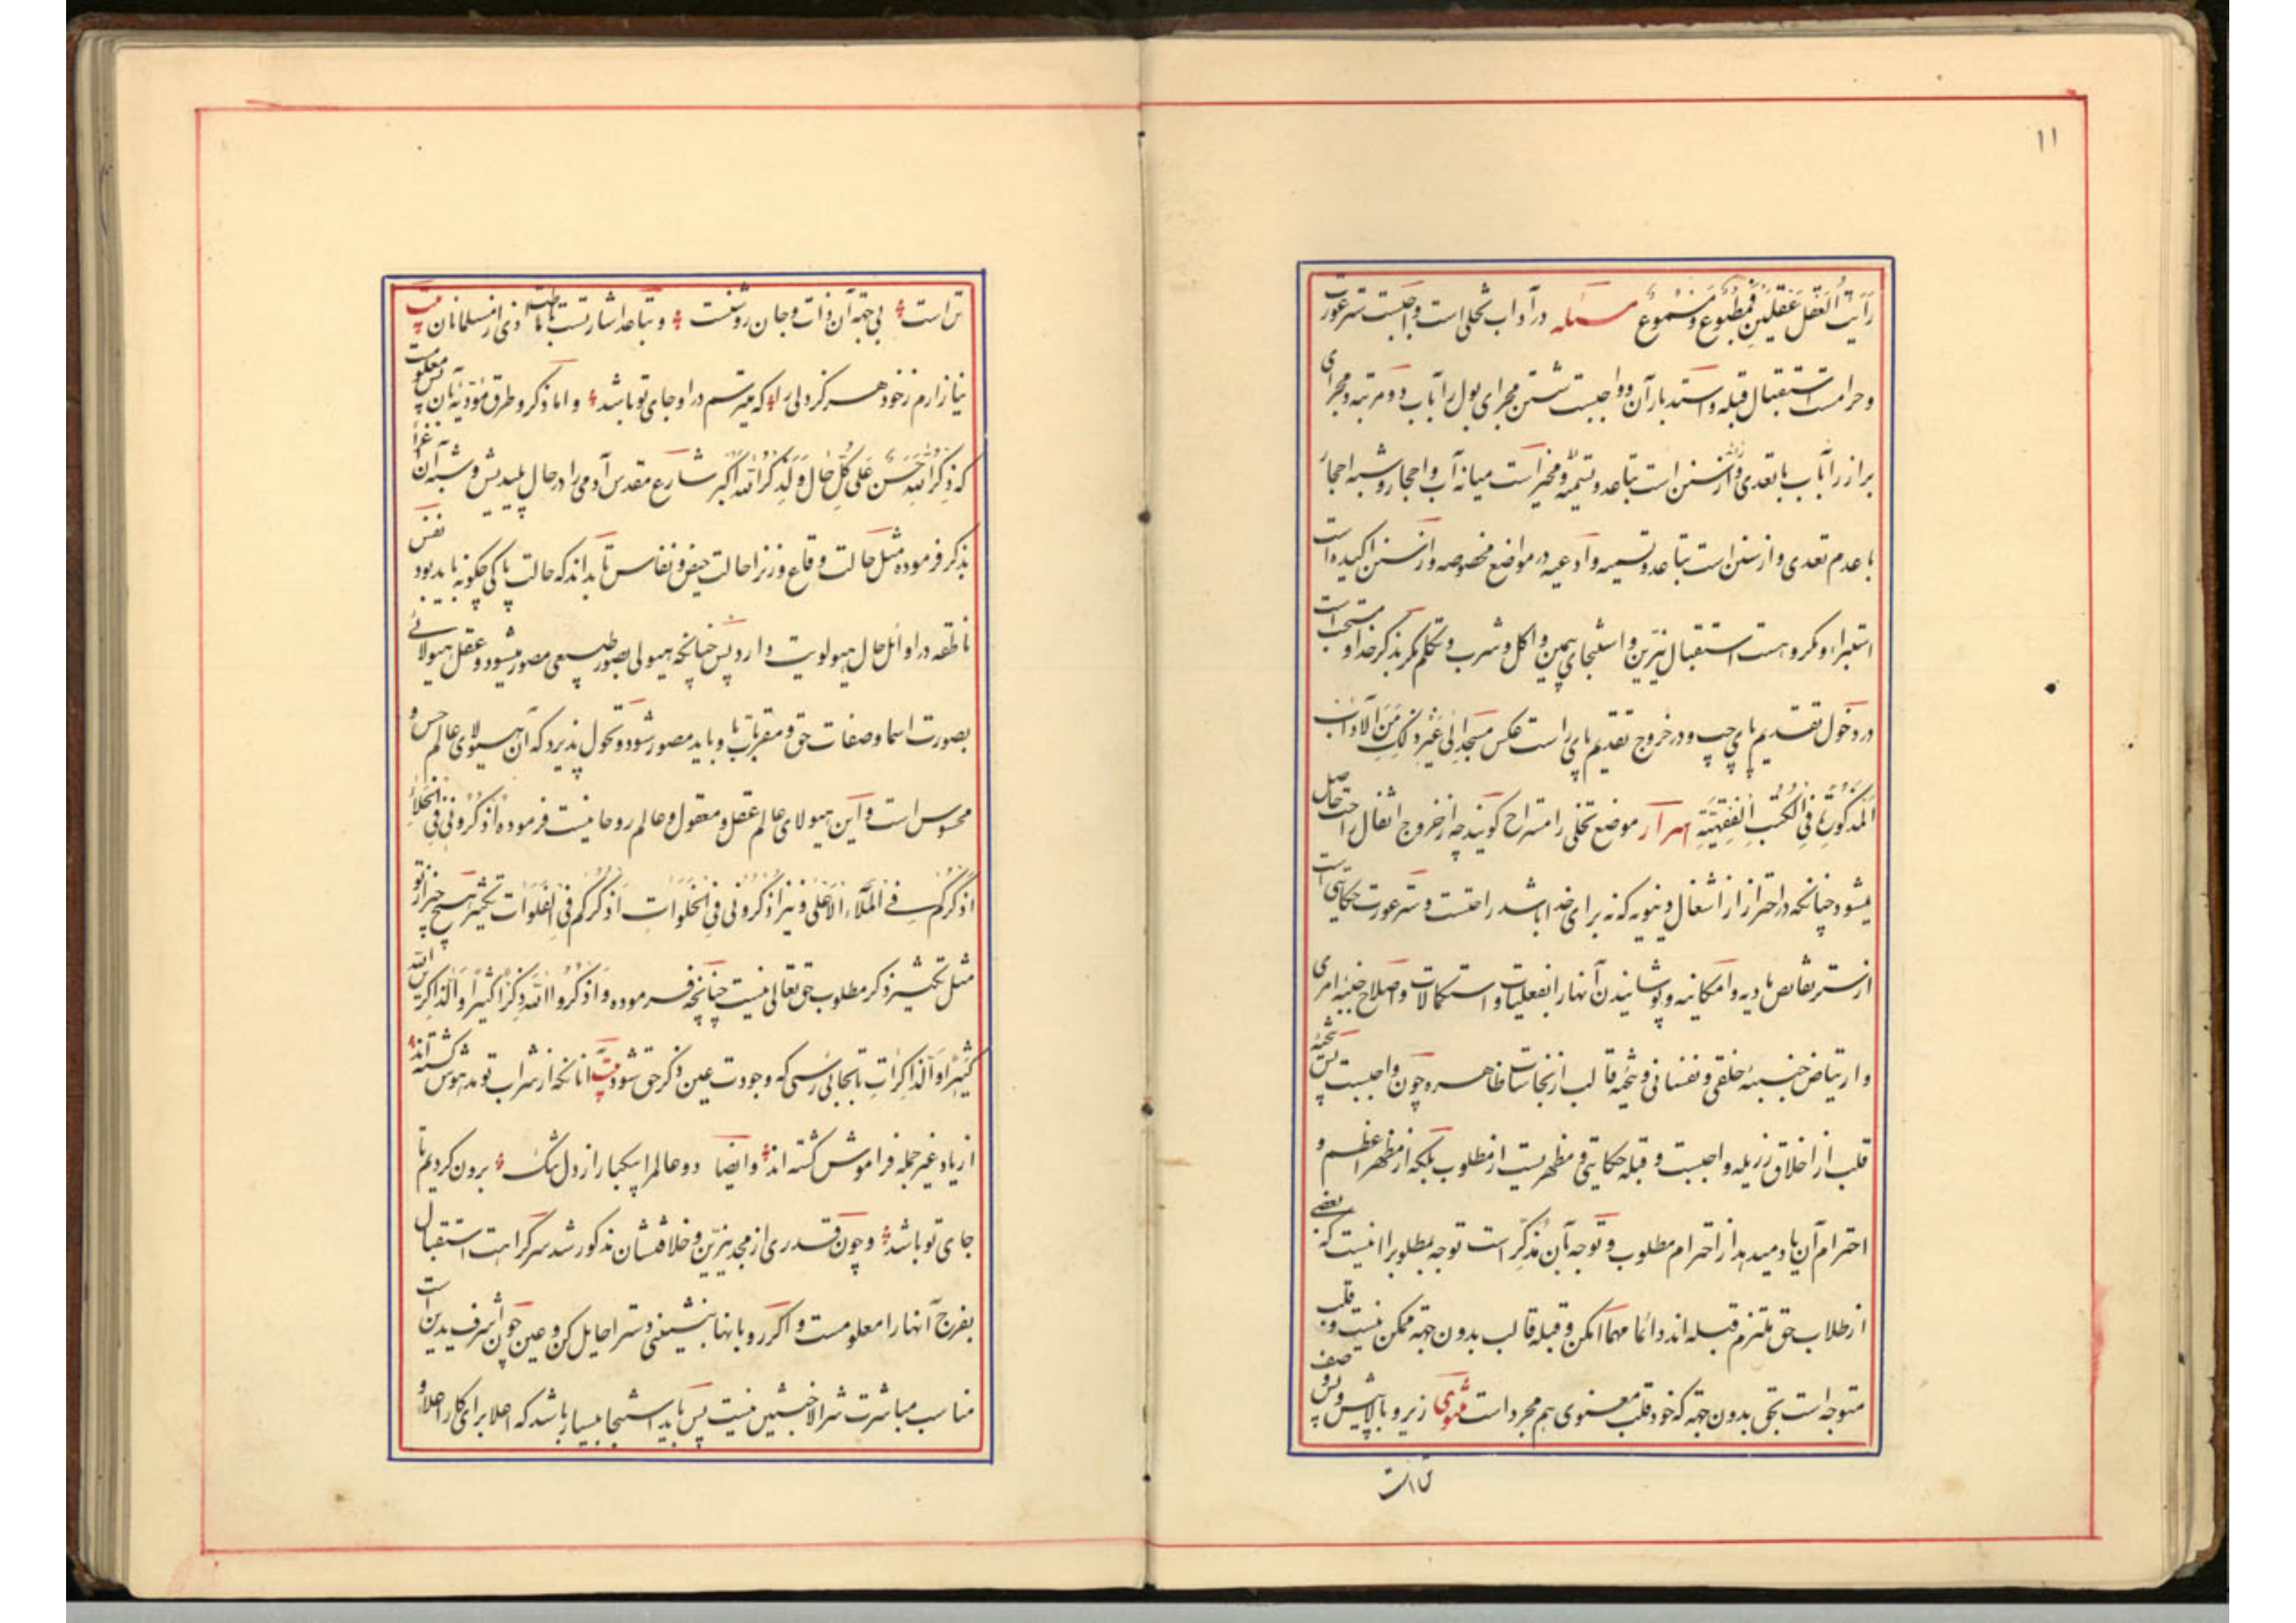 ۱۱
رَأَیْتُ الْعَقْلَ عَقْلَیْنِ فَمَطْبُوعٌ وَ مَسْمُوعٌ مسئله در آداب تخلی است واجبست ستر عورت
و حرامست استقبال قبله و استدبار آن و واجبست شستن مجرای بول را بآب دو مرتبه و مجرای
براز را بآب با تعدی و مخیر است میانه آب و احجار و شبه احجار
با عدم تعدی و از سنن است تباعد و تسمیه و ادعیه در مواضع مخصوصه و از سنن اکیده است
استبراء و مکروهست استقبال نیّرین و استنجای بیمین و اکل و شرب و تکلم مگر بذکر خدا و مستحب است
در دخول تقدیم پای چپ و در خروج تقدیم پای راست عکس مسجد اِلی غَیْرِ ذلِکَ مِنَ الآدابِ
الْمَذْکُورَةِ فِی الْکُتُبِ الْفِقْهِیَّةِ اسرار موضع تخلی را مستراح گویند چه از خروج اثفال راحت حاصل
میشود چنانچه در احتراز از اشغال دنیویه که نه برای خدا باشد راحتست و ستر عورت حکایتی است
از ستر نقائص مادیه و امکانیه و پوشانیدن آنها را بفعلیات و استکمالات و اصلاح خبیثه امری
و ارتیاض خبیثه خلقی و نفسانی و تنحیه قالب از نجاسات ظاهره چون واجبست پس تنحیه
قلب از اخلاق رزیله واجبست و قبله حکایتی و مظهریست از مطلوب بلکه از مظهر اعظم و
احترام آن یاد میدهد از احترام مطلوب و توجه بآن مذکّر است توجه بمطلوب را اینست که بعضی
از طلاب حق ملتزم قبله اند دائما مهما امکن و قبله قالب بدون جهة ممکن نیست و قلب
متوجه است بحق بدون جهة که خود قلب معنوی هم مجرد است مثنوی زیر و بالا پیش و پس وصف
تن است
تن است بی جهة آن ذات و جان روشنست و تباعد اشارتست باماطة اذی از مسلمانان بیت
نیازارم زخود هرگز دلی را که میترسم در او جای تو باشد و اما ذکر و طرق مؤدیه بآن پس معلومست
که ذِکْرُ اللهِ حَسَنٌ عَلی کُلِّ حالٍ وَ لَذِکْرُ اللهِ اَکْبَرُ شارع مقدس آدمی را در حال پلیدیش و شبه آن
بذکر فرموده مثل حالت وقاع و زنرا حالت حیض و نفاس تا بداند که حالت پاکی چگونه باید بود نفس
ناطقه در اوائل حال هیولویت دارد پس چنانچه هیولی بصور طبیعی مصور میشود و عقل هیولانی
بصورت اسما و صفات حق و مقرباتٍ باو باید مصور شود و تحول پذیرد که آن هیولای عالم حس و
محسوس است و این هیولای عالم عقل و معقول و عالم روحانیست فرموده اُذْکُرُونی فِی الْخَلاءِ
اَذْکُرْکُمْ فِی الْمَلَاءِ الْاَعْلی و نیز اُذْکُرُونی فِی الْخَلَواتِ اَذْکُرْکُمْ فِی الْفَلَواتِ تکثیر هیچ چیز از تو
مثل تکثیر ذکر مطلوب حق تعالی نیست چنانچه فرموده وَ اذْکُرُوا اللهَ ذِکْراً کَثیراً وَ الذّاکِرینَ اللهَ
کَثیراً وَ الذّاکِراتِ تا بجائی رسی که وجودت عین ذکر حق شود بیت آنانکه از شراب تو مدهوش گشته اند
از یاد غیر جمله فراموش گشته اند و ایضا دو عالم را بیکبار از دل تنگ برون کردیم تا
جای تو باشد و چون قدری از مجد نیّرین و خلافتشان مذکور شد سر کراهت استقبال
بفرج آنها را معلومست و اگر رو بآنها بنشینی و ستر احایل کن و عین چون اشرف یدین است
مناسب مباشرت شرّ الاخبثین نیست پس باید استنجا بیسار باشد که اعلا برای کار اعلا و